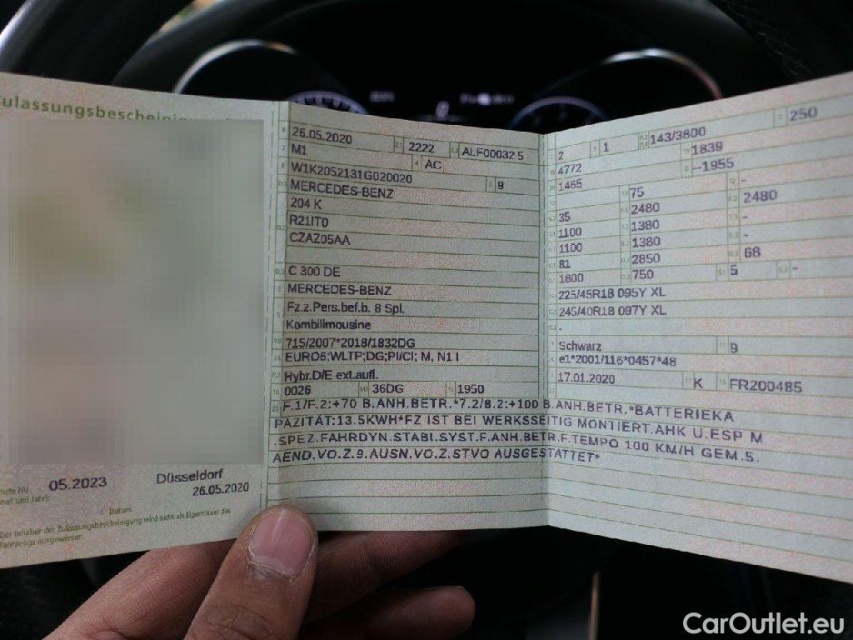 Zulassungsbescheini
05.2023
Düsseldorf
26.05.2020
Datum
Der Inhaber der Zulassungsbescheinigung wird nicht als Eigentümer des
Fahrzeugs ausgewiesen.
26.05.2020 2222 ALF00032 5
M1 AC
W1K2052131G020020 9
MERCEDES-BENZ
204 K
R21IT0
CZAZ05AA
C 300 DE
MERCEDES-BENZ
Fz.z.Pers.bef.b. 8 Spl.
Kombilimousine
715/2007*2018/1832DG
EURO6;WLTP;DG;PI/CI; M, N1 I
Hybr.D/E ext.aufl.
0026 36DG 1950
2 1 143/3800 250
4772 1839
1465 -1955
75 -
35 2480 2480
1100 1380 -
1100 1380 -
81 2850 68
1800 750 5 -
225/45R18 095Y XL
245/40R18 097Y XL
-
Schwarz 9
e1*2001/116*0457*48
17.01.2020 K FR200485
F.1/F.2:+70 B.ANH.BETR.*7.2/8.2:+100 B.ANH.BETR.*BATTERIEKA
PAZITÄT:13.5KWH*FZ IST BEI WERKSSEITIG MONTIERT.AHK U.ESP M
SPEZ.FAHRDYN.STABI.SYST.F.ANH.BETR.F.TEMPO 100 KM/H GEM.5.
AEND.VO.Z.9.AUSN.VO.Z.STVO AUSGESTATTET*
CarOutlet.eu